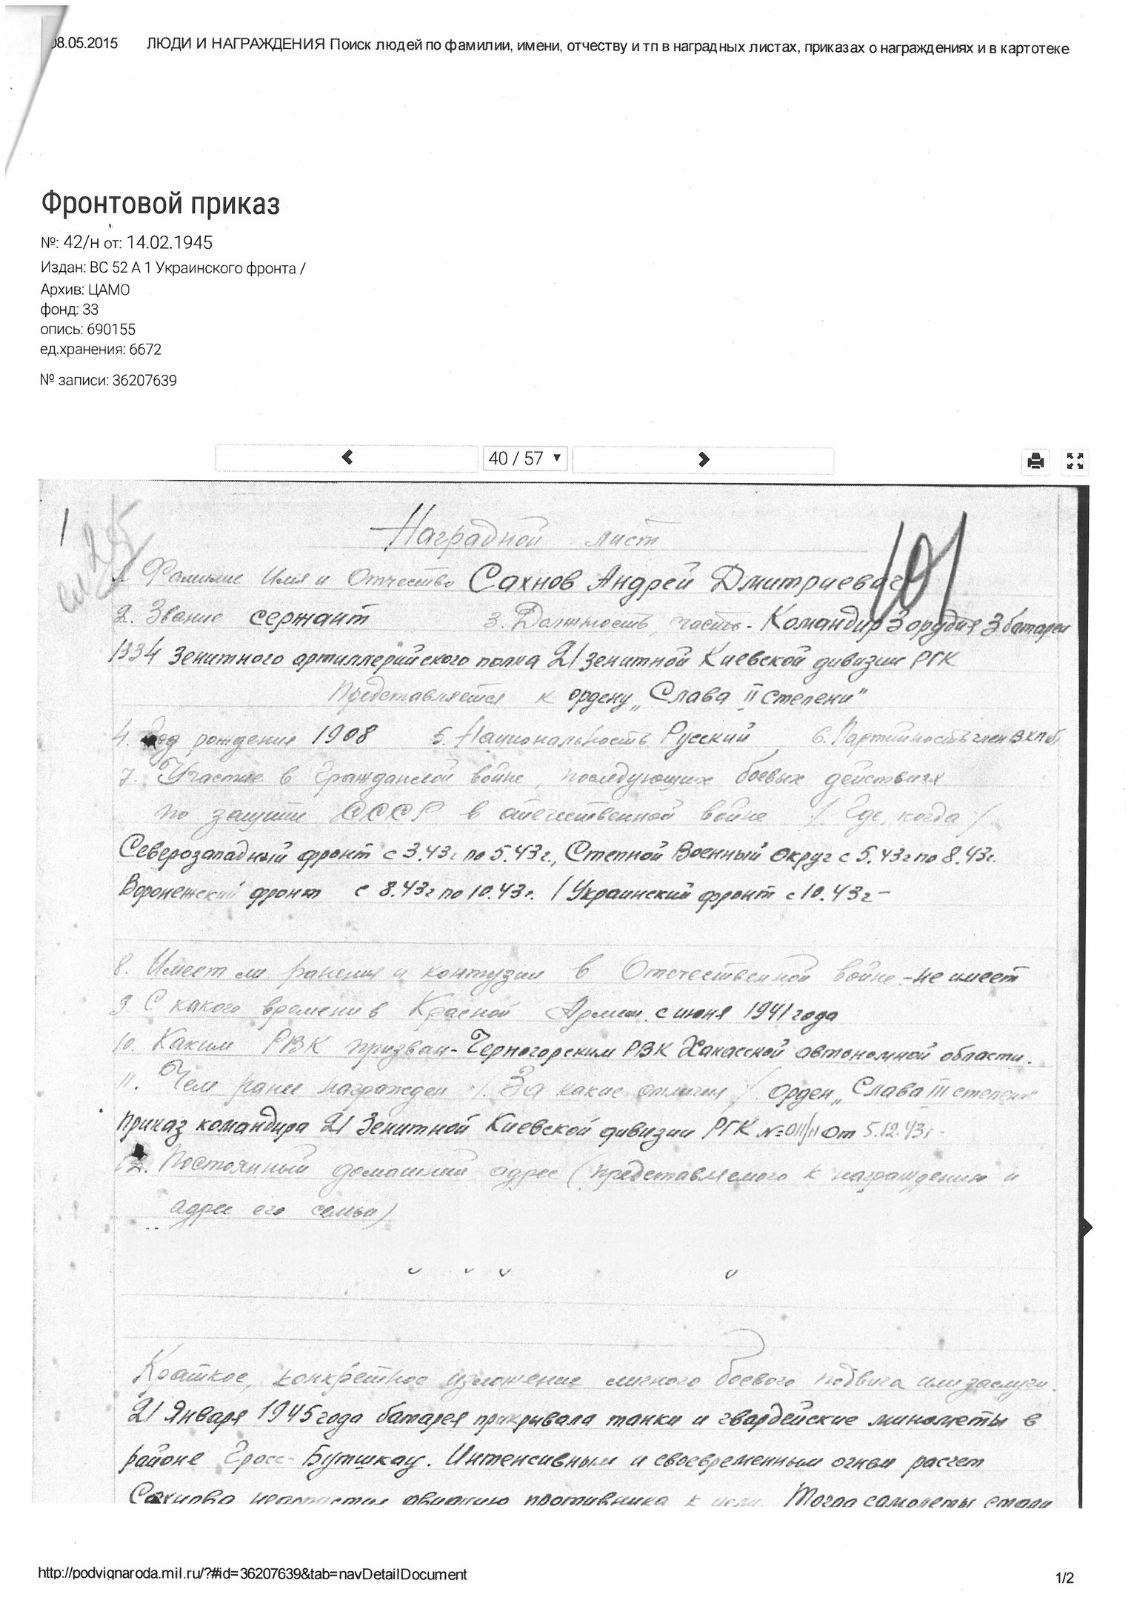 08.05.2015 ЛЮДИ И НАГРАЖДЕНИЯ Поиск людей по фамилии, имени, отчеству и тп в наградных листах, приказах о награждениях и в картотеке
Фронтовой приказ
№: 42/н от: 14.02.1945
Издан: ВС 52 А 1 Украинского фронта /
Архив: ЦАМО
фонд: 33
опись: 690155
ед.хранения: 6672
№ записи: 36207639
40 / 57
1
Наградной лист
101
1. Фамилие Имя и Отчество Сахнов Андрей Дмитриевич
2. Звание сержант 3. Должность, часть - Командир 3 орудия 3 батареи
1334 Зенитного артиллерийского полка 21 Зенитной Киевской дивизии РГК
Представляется к ордену „Слава II степени"
4. Год рождения 1908 5. Национальность Русский 6. Партийность член ВКП(б)
7. Участие в Гражданской войне, последующих боевых действиях
по защите СССР в отечественной войне / Где, когда /
Северозападный фронт с 3.43г. по 5.43г., Степной Военный Округ с 5.43г по 8.43г.
Воронежский фронт с 8.43г по 10.43г. 1 Украинский фронт с 10.43г -
8. Имеет ли ранения и контузии в Отечественной войне - не имеет
9. С какого времени в Красной Армии. с июня 1941 года
10. Каким РВК призван - Черногорским РВК Хакасской автономной области.
11. Чем ранее награжден /. За какие отличия / орден „Слава III степени"
приказ командира 21 Зенитной Киевской дивизии РГК № от 5.12.43г -
12. Постоянный домашний адрес (представляемого к награждению и
адрес его семьи)
Краткое, конкретное изложение личного боевого подвига или заслуги.
21 Января 1945 года батарея прикрывала танки и гвардейские минометы в
районе Гросс-Бутшкау. Интенсивным и своевременным огнем расчет
Сахнова недопустил авиацию противника к цели. Тогда самолеты стали
http://podvignaroda.mil.ru/?#id=36207639&tab=navDetailDocument
1/2